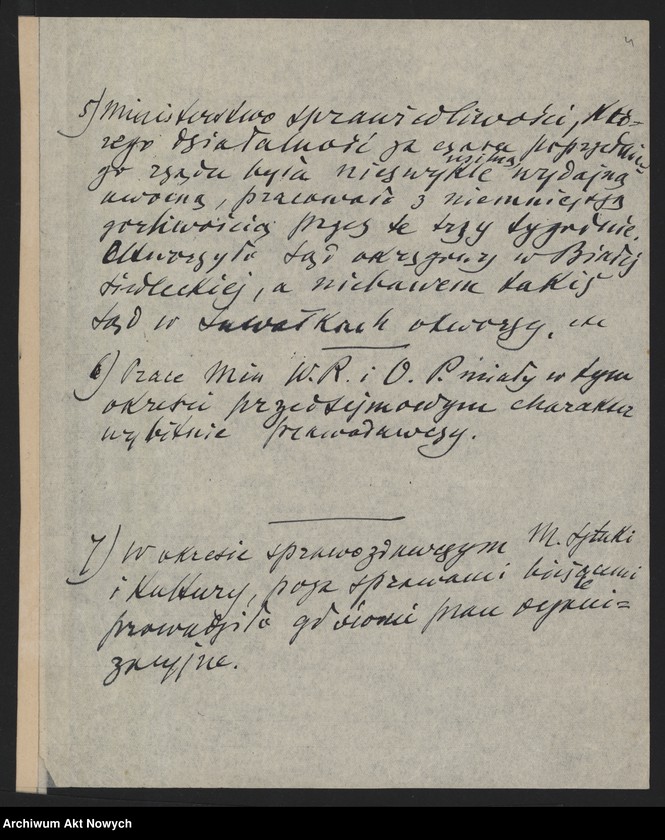 4
5) Ministerstwo sprawiedliwości, któ-
rego działalność za czasu poprzednie
go rządu była niezwykle wydajną
owocną, pracowało z niemniejszą
gorliwością przez te trzy tygodnie.
Utworzyło sąd okręgowy w Białej
siedleckiej, a niebawem takiż
sąd w Suwałkach otworzy.
6) Prace Min W. R. i O. P. miały w tym
okresie przedsejmowym charakter
wybitnie prawodawczy.
7) W okresie sprawozdawczym M. Sztuki
i Kultury, poza sprawami bieżącemi
prowadziło głównie prace organi=
zacyjne.
Archiwum Akt Nowych